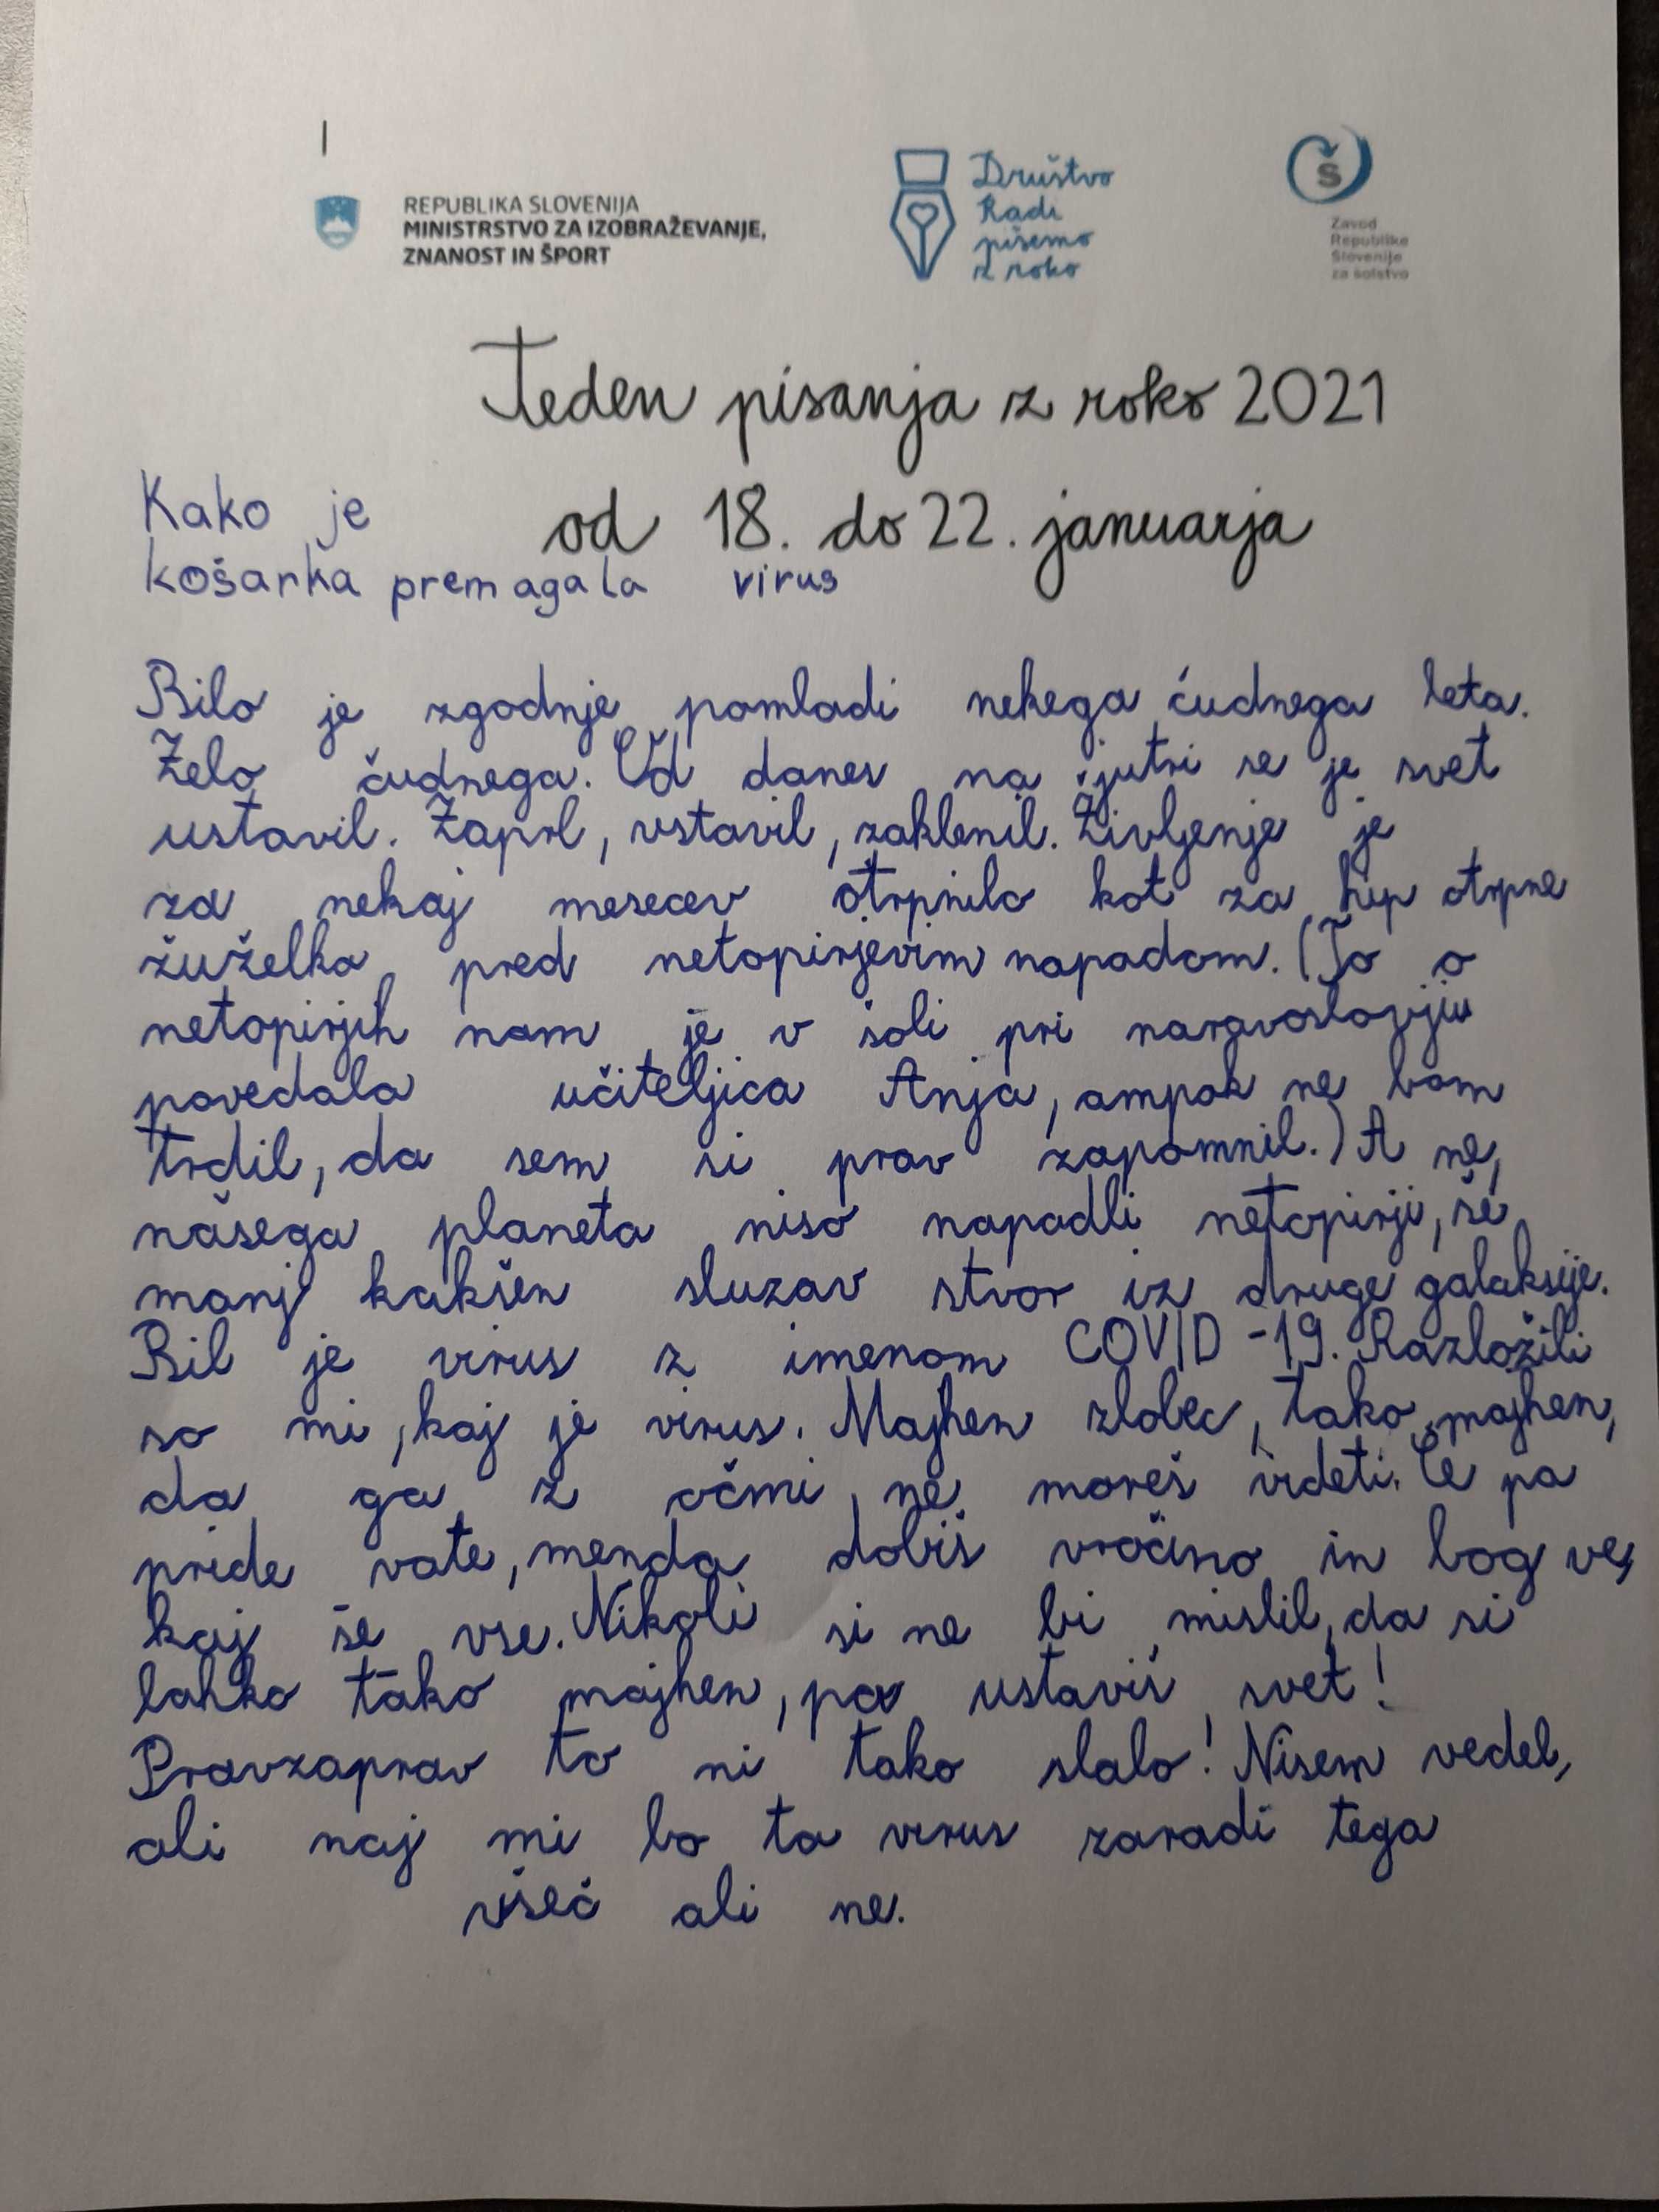 REPUBLIKA SLOVENIJA
MINISTRSTVO ZA IZOBRAŽEVANJE,
ZNANOST IN ŠPORT
Društvo
Radi
pišemo
z roko
Š
Zavod
Republike
Slovenije
za šolstvo
Teden pisanja z roko 2021
od 18. do 22. januarja
Kako je
košarka premagala virus
Bilo je zgodnje pomladi nekega čudnega leta.
Zelo čudnega. Od danes na jutri se je svet
ustavil. Zaprl, ustavil, zaklenil. Življenje je
za nekaj mesecev otrpnilo kot za hip otrpne
žuželka pred netopirjevim napadom. (To o
netopirjih nam je v šoli pri naravoslovju
povedala učiteljica Anja, ampak ne bom
trdil, da sem si prav zapomnil.) A ne,
našega planeta niso napadli netopirji, še
manj kakšen sluzav stvor iz druge galaksije.
Bil je virus z imenom COVID-19. Razložili
so mi, kaj je virus. Majhen zlobec, tako majhen,
da ga z očmi ne moreš videti. Če pa
pride vate, menda dobiš vročino in bog ve,
kaj še vse. Nikoli si ne bi mislil, da si
lahko tako majhen, pa ustaviš svet!
Pravzaprav to ni tako slabo! Nisem vedel,
ali naj mi bo ta virus zaradi tega
všeč ali ne.